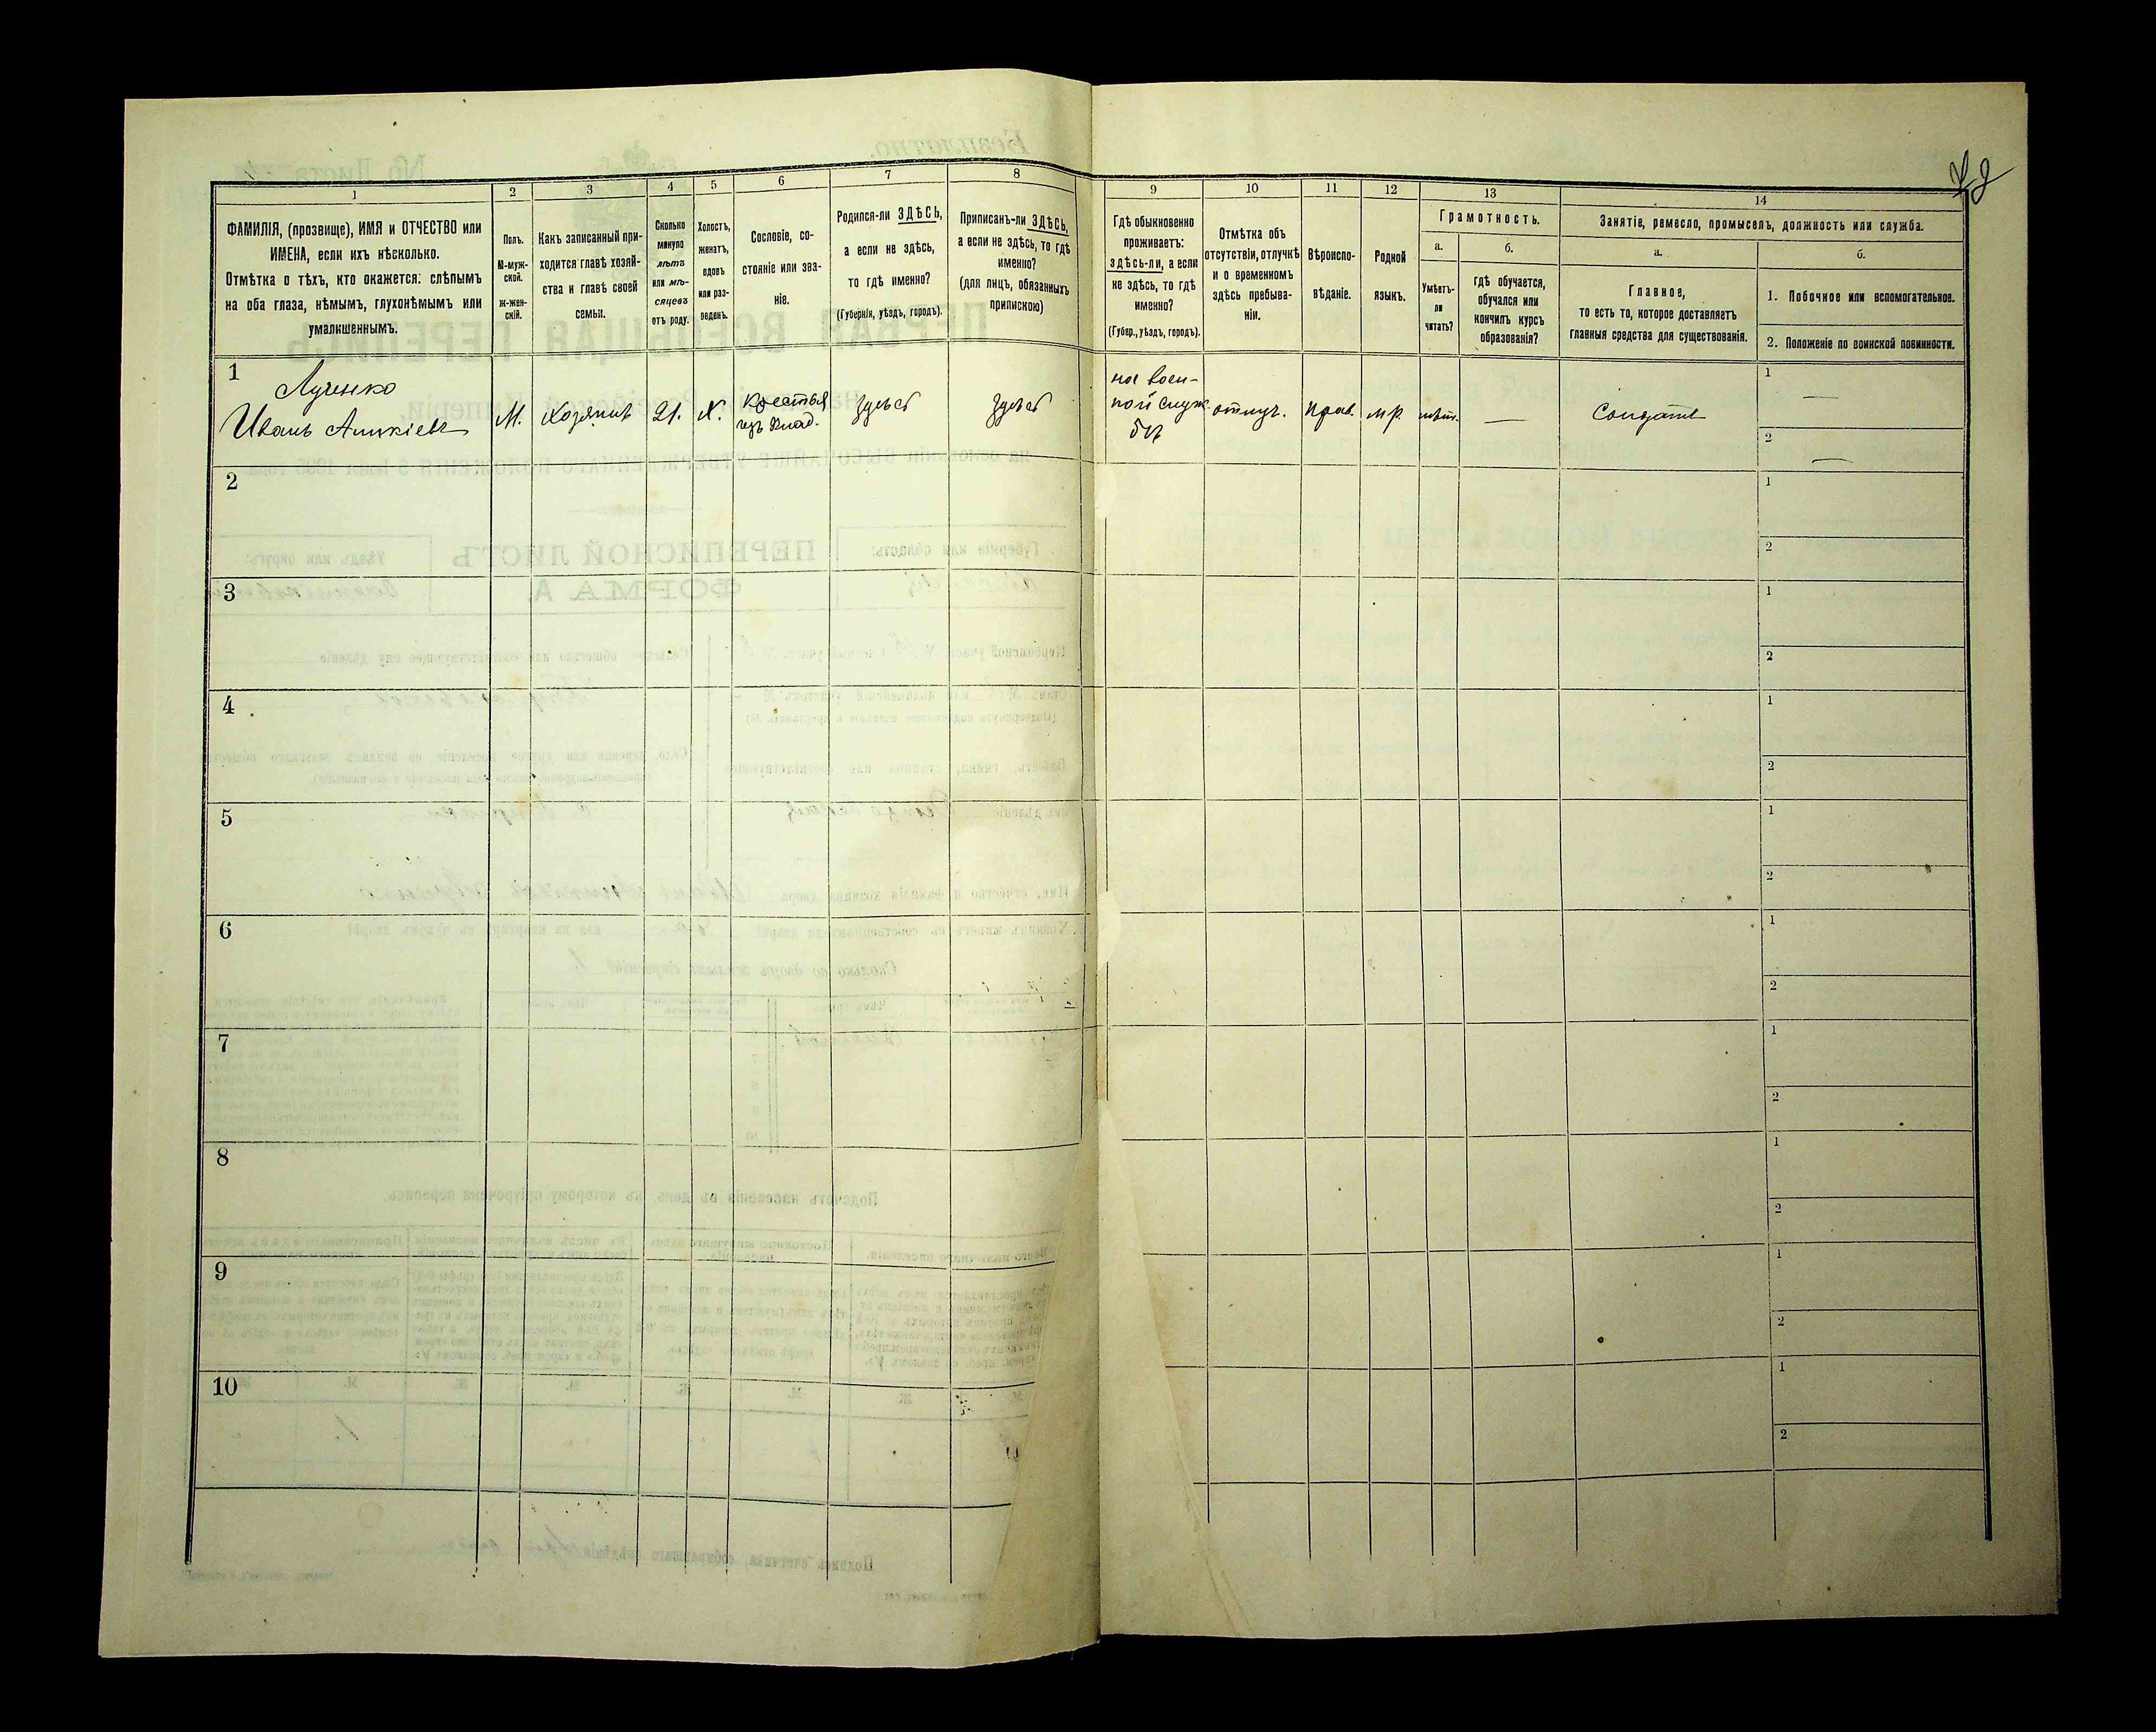 1
2
3
4
5
6
7
8
9
10
11
12
13
14
ФАМИЛІЯ, (прозвище), ИМЯ и ОТЧЕСТВО или
ИМЕНА, если ихъ нѣсколько.
Отмѣтка о тѣхъ, кто окажется: слѣпымъ
на оба глаза, нѣмымъ, глухонѣмымъ или
умалишеннымъ.
Полъ.
М-муж-
ской.
Ж-жен-
скій.
Какъ записанный при-
ходится главѣ хозяй-
ства и главѣ своей
семьи.
Сколько
минуло
лѣтъ
или мѣ-
сяцевъ
отъ роду.
Холостъ,
женатъ,
вдовъ
или раз-
веденъ.
Сословіе, со-
стояніе или зва-
ніе.
Родился-ли ЗДѢСЬ,
а если не здѣсь,
то гдѣ именно?
(Губернія, уѣздъ, городъ).
Приписанъ-ли ЗДѢСЬ,
а если не здѣсь, то гдѣ
именно?
(для лицъ, обязанныхъ
припискою)
Гдѣ обыкновенно
проживаетъ:
здѣсь-ли, а если
не здѣсь, то гдѣ
именно?
(Губер., уѣздъ, городъ).
Отмѣтка объ
отсутствіи, отлучкѣ
и о временномъ
здѣсь пребыва-
ніи.
Вѣроиспо-
вѣданіе.
Родной
языкъ.
Грамотность.
а.
Умѣетъ-
ли
читать?
б.
гдѣ обучается,
обучался или
кончилъ курсъ
образованія?
Занятіе, ремесло, промыселъ, должность или служба.
а.
Главное,
то есть то, которое доставляетъ
главныя средства для существованія.
б.
1. Побочное или вспомогательное.
2. Положеніе по воинской повинности.
1
Луценко
Иванъ
М.
Хозяинъ
21.
Х.
Крестья
изъ влад.
здѣсь
здѣсь
на воен-
ной служ-
бѣ
отлуч.
прав.
мр.
нѣт.
—
Солдатъ
1
—
2
—
2
1
2
3
1
2
4
1
2
5
1
2
6
1
2
7
1
2
8
1
2
9
1
2
10
1
2